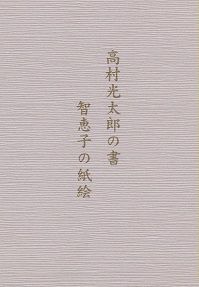 高村光太郎の書
智恵子の紙絵